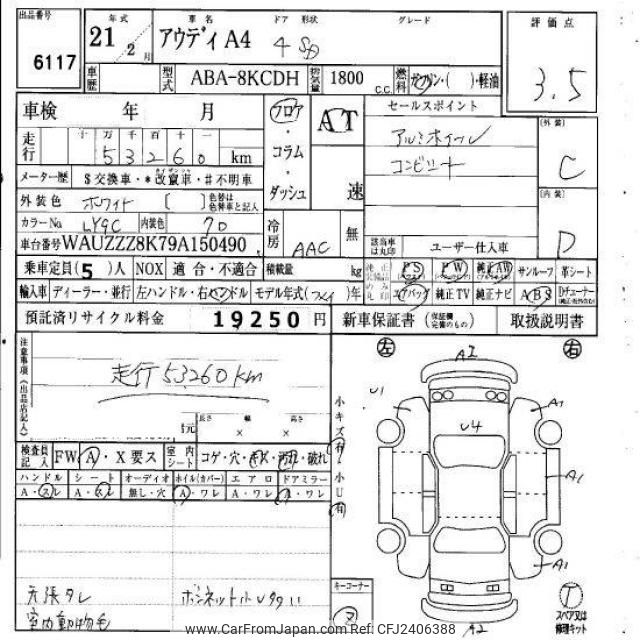 出品番号 年式 車名 ドア 形状 グレード 評価点
6117 21年 2月 アウディ A4 4 SD 3.5
車歴 型式 ABA-8KCDH 排気量 1800 c.c. 燃料 ガソリン・( )・軽油
車検 年 月 フロア・コラム・ダッシュ AT 速 セールスポイント [外装]
走行 十 万 千 百 十 一 アルミホイール C
53260 km コンビシート
メーター歴 $交換車・*改竄車・#不明車 [内装]
外装色 ホワイト [ ] 色替は色替車と記入
カラーNo LY9C 内装色 70 冷房 AAC 無 D
車台番号 WAUZZZ8K79A150490 該当車は丸印 ユーザー仕入車
乗車定員(5)人 NOX 適合・不適合 積載量 kg PS PW 純正AW サンルーフ 革シート
輸入車 ディーラー・並行 左ハンドル・右ハンドル モデル年式( )年 エアバッグ 純正TV 純正ナビ ABS Dチューナー
預託済リサイクル料金 19250 円 新車保証書 (保証欄完備のもの) 取扱説明書
注意事項(出品店記入) 走行53260km
左 右
A1
U1 A1
U4
A1
A1
A2
長さ 幅 高さ
元 × ×
小キズ有・小U有
検査員記入 FW A・X要ス 室内シート コゲ・穴・キズ・汚れ・破れ
ハンドル シート オーディオ ホイル(カバー) エアロ ドアミラー
A・スレ A・スレ 無し・穴 A・ワレ A・ワレ A・ワレ
天張タレ
室内動物毛
キーコーナー
スペア又は修理キット
www.CarFromJapan.com Ref: CFJ2406388